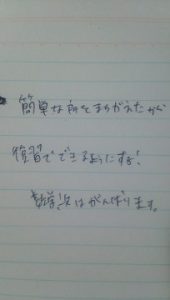 簡単な所をまちがえたから
復習でできるようにする!
数学次はがんばります。